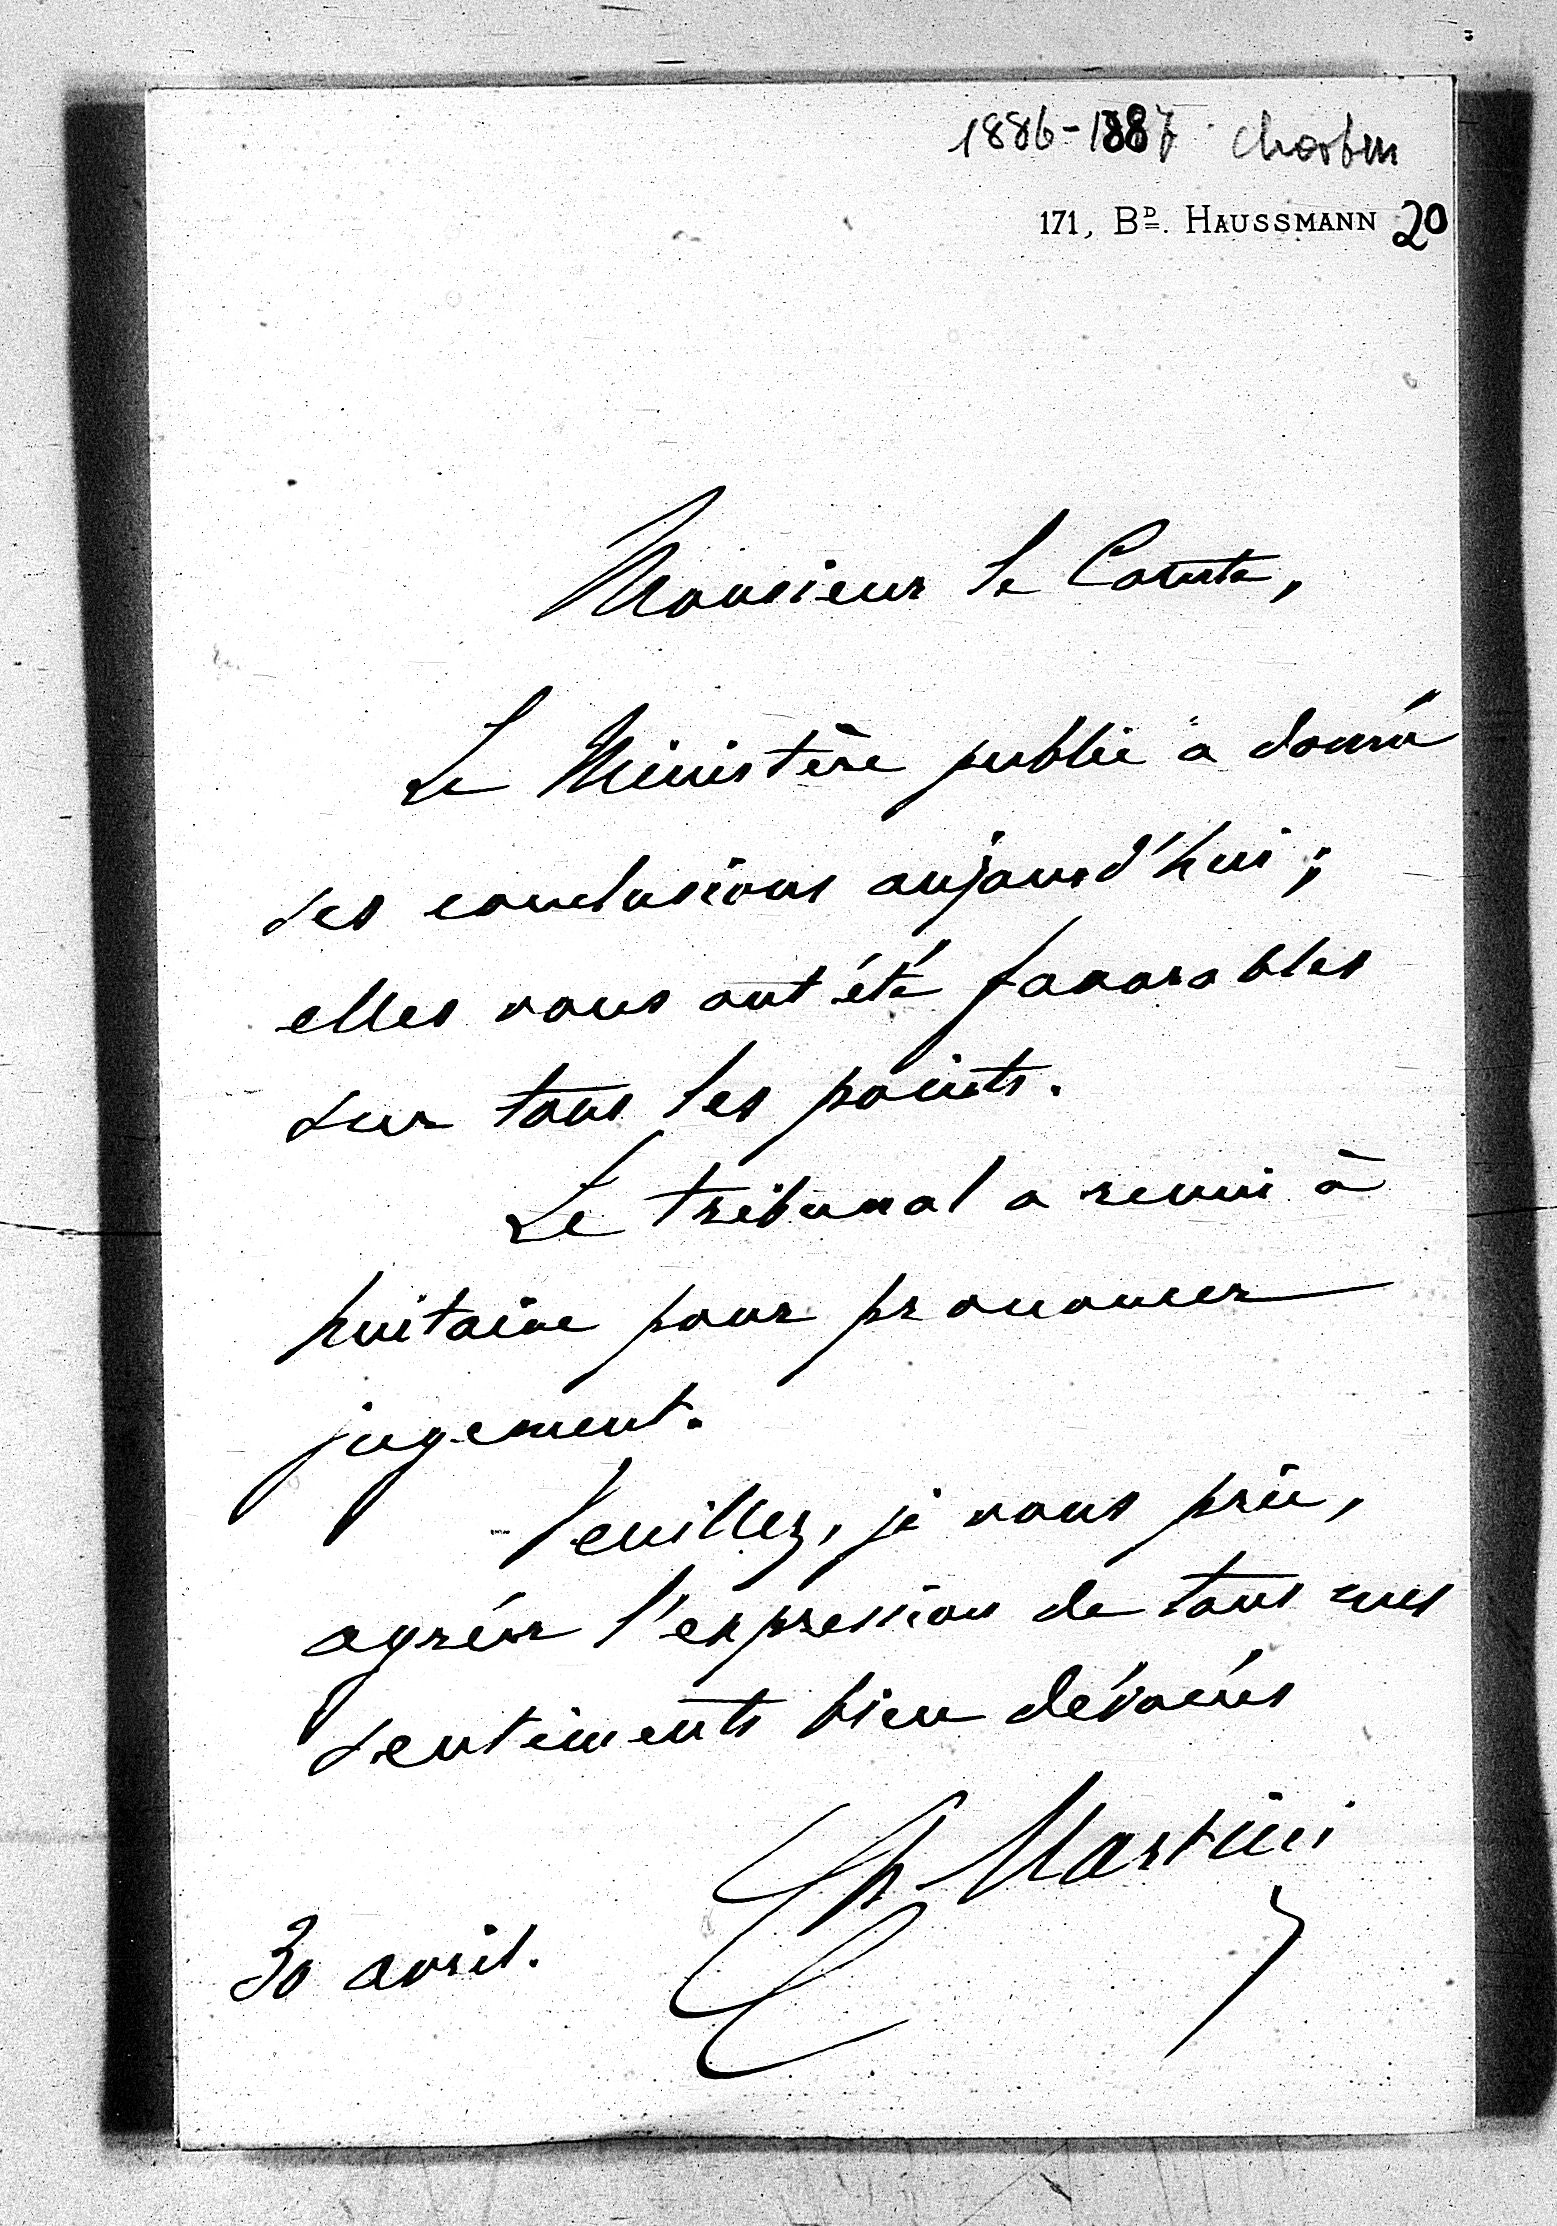 1886-1887
171, BD. HAUSSMANN 20
Monsieur le Comte,
Le Ministère public a donné
ses conclusions aujourd'hui ;
elles vous ont été favorables
sur tous les points.
Le tribunal a remis à
huitaine pour prononcer
jugement.
Veuillez, je vous prie,
agréer l'expression de tous mes
sentiments bien dévoués
Ch. Martini
30 avril.